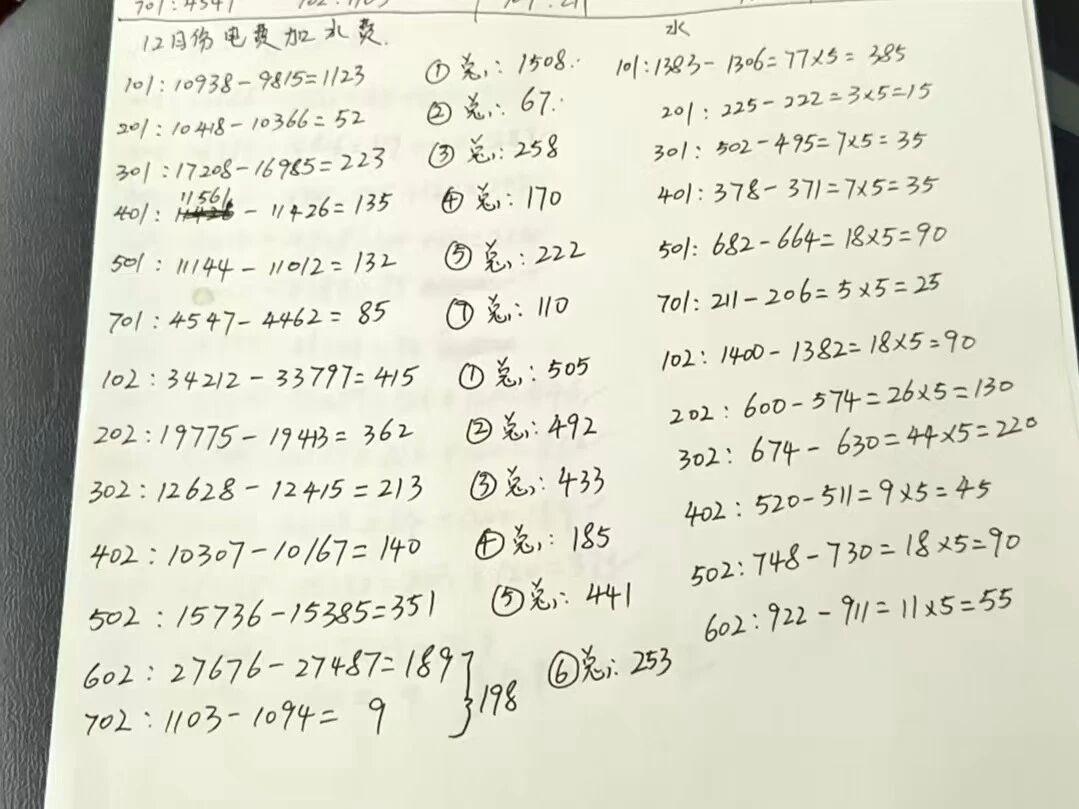 12月份电费加水费. 水
101:10938-9815=1123 ①总:1508. 101:1383-1306=77×5=385
201:10418-10366=52 ②总:67. 201:225-222=3×5=15
301:17208-16985=223 ③总:258 301:502-495=7×5=35
401:11561-11426=135 ④总:170 401:378-371=7×5=35
501:11144-11012=132 ⑤总:222 501:682-664=18×5=90
701:4547-4462=85 ⑦总:110 701:211-206=5×5=25
102:34212-33797=415 ①总:505 102:1400-1382=18×5=90
202:19775-19413=362 ②总:492 202:600-574=26×5=130
302:12628-12415=213 ③总:433 302:674-630=44×5=220
402:10307-10167=140 ④总:185 402:520-511=9×5=45
502:15736-15385=351 ⑤总:441 502:748-730=18×5=90
602:27676-27487=189 ⑥总:253 602:922-911=11×5=55
702:1103-1094=9 }198